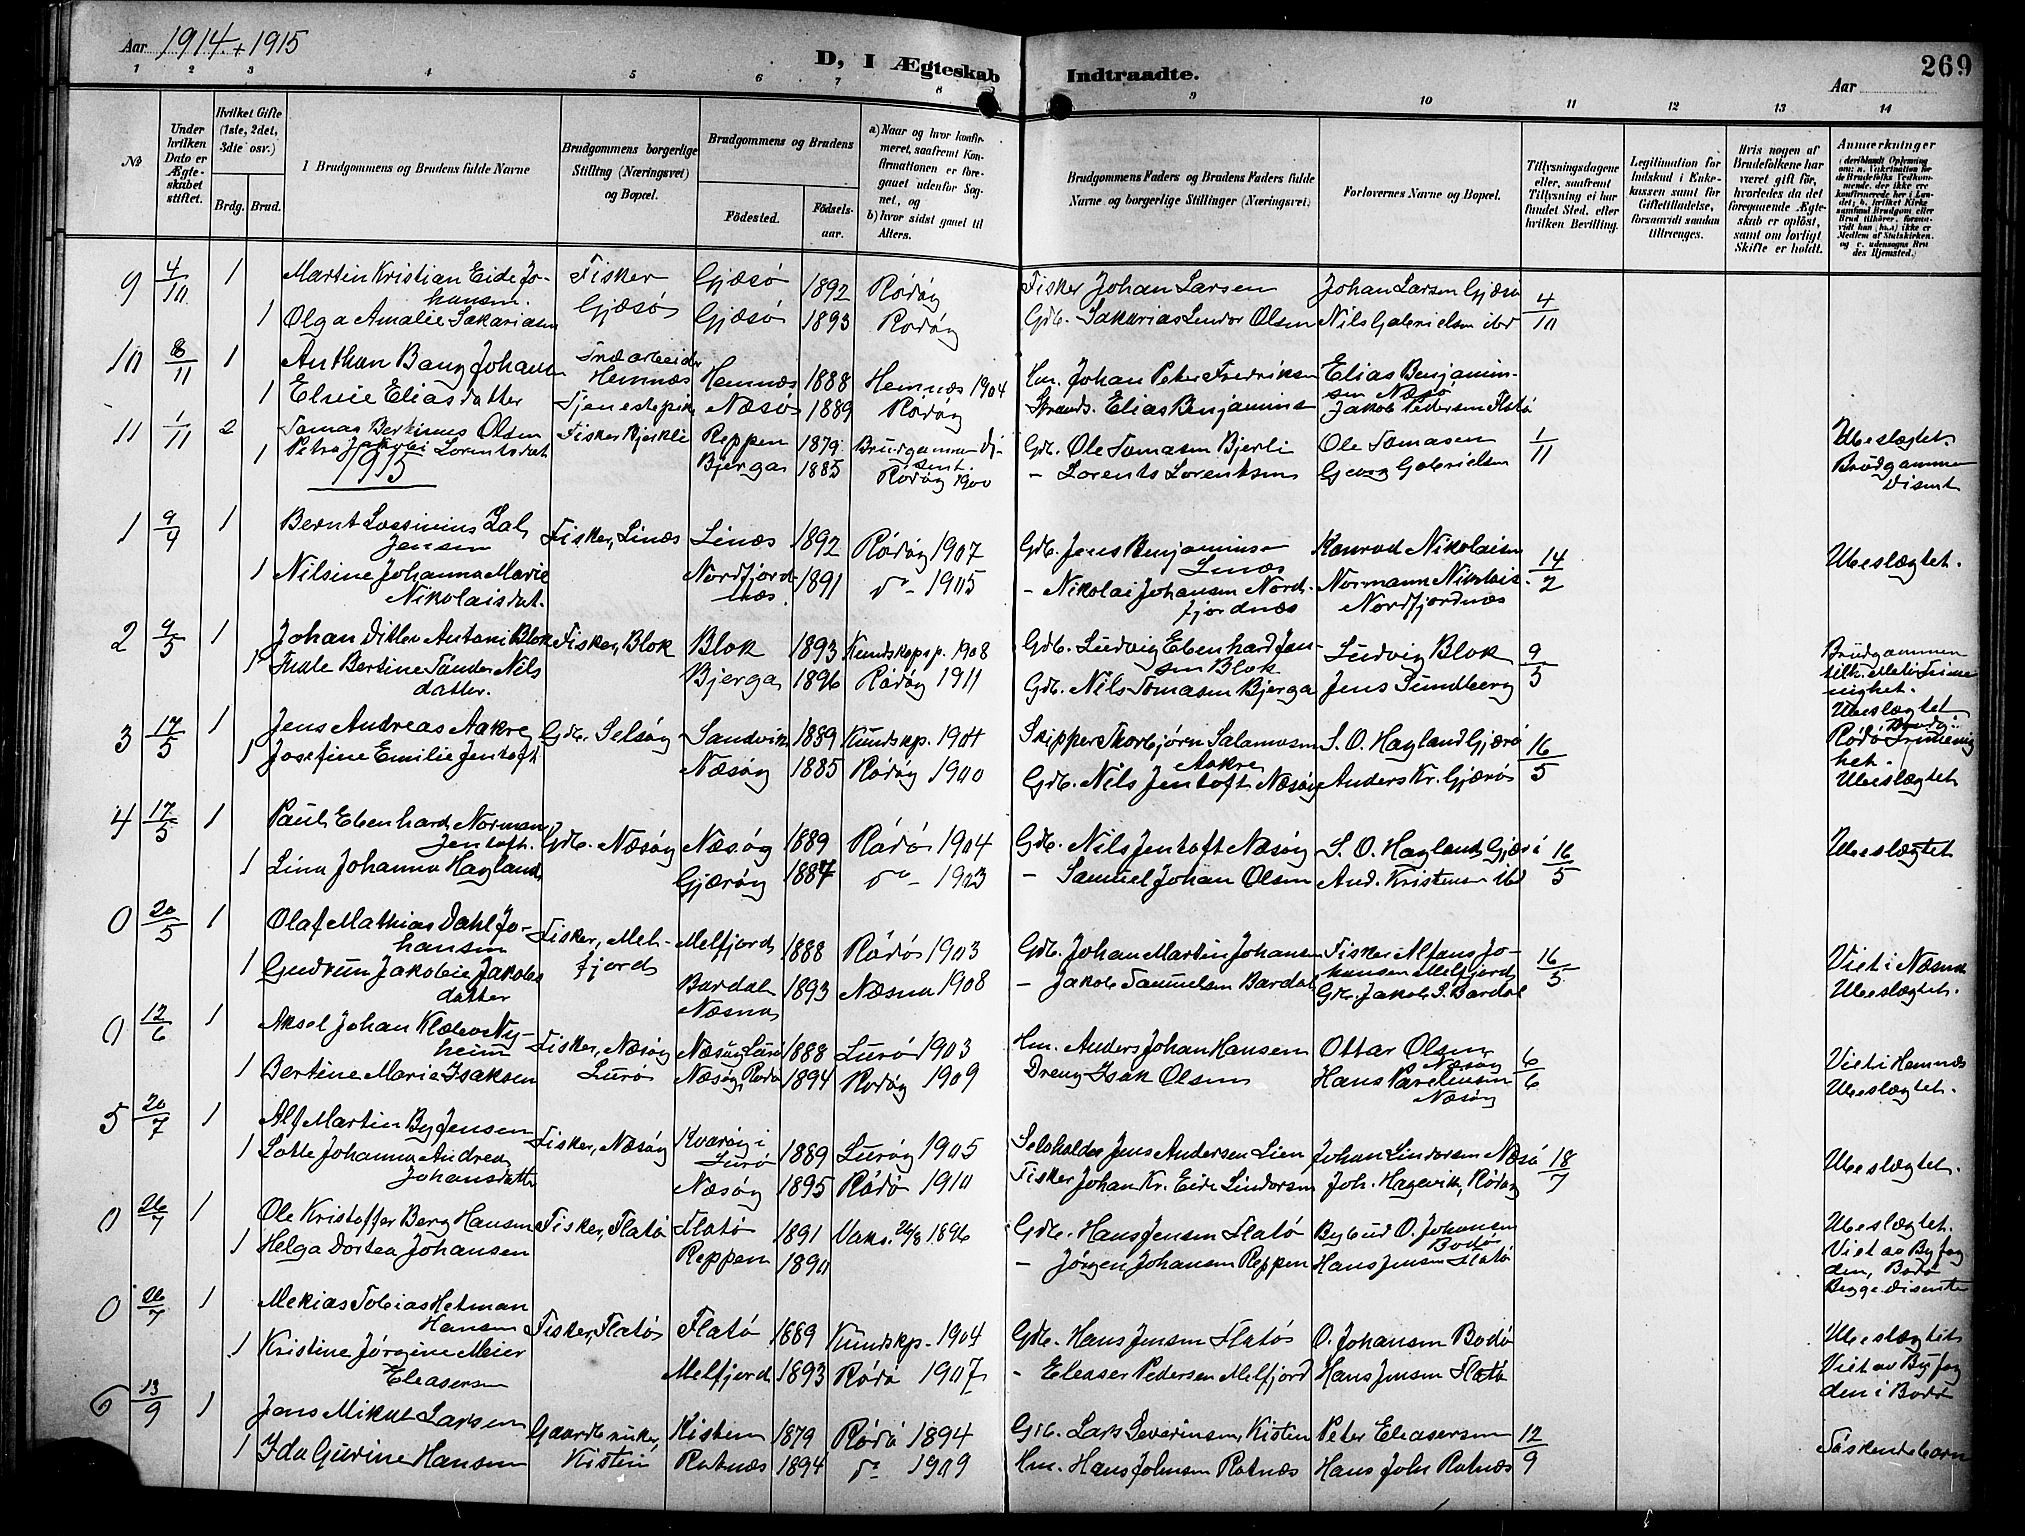 Aar 1914 + 1915
D, I Ægteskab Indtraadte.
269
Aar
1 2 3 4 5 6 7 8 9 10 11 12 13 14
No
Under hvilken Dato er Ægteskabet stiftet.
Hvilket Gifte (1ste, 2det, 3die osv.)
Brdg. Brud.
1 Brudgommens og Brudens fulde Navne
Brudgommens borgerlige Stilling (Næringsvei) og Bopæl.
Brudgommens og Brudens
Fødested.
Fødselsaar.
a) Naar og hvor konfirmeret, saafremt Konfirmationen er foregaaet udenfor Sognet, og
b) hvor sidst gaaet til Alters.
Brudgommens Faders og Brudens Faders fulde Navne og borgerlige Stillinger (Næringsvei)
Forlovernes Navne og Bopæl.
Tillysningsdagene eller, saafremt Tillysning ei har fundet Sted, efter hvilken Bevilling.
Legitimation for Indskud i Enkekassen samt for Giftetilladelse, forsaavidt saadan tiltrænges.
Hvis nogen af Brudefolkene har været gift før, hvorledes da det foregaaende Ægteskab er opløst, samt om lovligt Skifte er holdt.
Anmerkninger
9 4/10 1 Martin Kristian Eide Johansen. Fisker Gjæsø Gjæsø 1892 Rödöy Fisker Johan Larsen Johan Larsen Gjæsø 4/10
1 Olga Amalie Sakariasen Gjæsø 1893 Rödöy Gdb. Sakarias Lindor Olsen Nils Gabrielsen ibd
10 8/11 1 Anthon Bang Johansen Hemnæs Hemnæs 1888 Hemnæs 1904 Hm. Johan Peter Fredriksen Elias Benjaminsen Næsö
1 Eliasdatter Tjenestepike Næsö 1889 Rödöy Strands. Elias Benjaminsen Jakob Pedersen Flatö
11 1/11 2 Tomas Olsen Fisker Reppen 1879 Brudgommen Disent. Gdb. Ole Tomasen Bjerli Ole Tomasen 1/11 Ubeslægtet.
1 Petra Lorentsdat Bjerga 1885 Rödöy 1900 - Lorents Lorentsen Georg Gabrielsen Brudgommen Disent
1915
1 9/4 1 Bernt Jensen Fisker, Linæs Linæs 1892 Rödöy 1907 Gdb. Jens Benjaminsen Linæs Konrad Nikolaisen 14/2 Ubeslægtet.
1 Nilsine Johanna Marie Nikolaisdat. Nordfjordnæs. 1891 do - 1905 - Nikolai Johansen Nordfjordnæs Normann Nikolais. Nordfjordnæs
2 9/5 1 Johan Ditlev Antoni Blok Fisker, Blok Blok 1893 Kundskapsp. 1908 Gdb. Ludvig Ebenhard Jensen Blok Ludvig Blok 9/5 Brudgommen
1 Bertine Nilsdatter. Bjerga 1896 Rödöy 1911 Gdb. Nils Tomasen Bjerga Jens Sundberg Ubeslægtet
3 17/5 1 Jens Andreas Aakre Gdb. Selsöy Sandvik 1889 Kundskp. 1904 Skipper Torbjörn Salamonsen Aakre S. O. Hagland Gjærö 16/5
1 Josefine Emilie Jentoft Næsöy 1885 Rödöy 1900 Gdb. Nils Jentoft Næsöy Anders Kr. Gjærö Ubeslægtet
4 17/5 1 Paul Ebenhard Norman Jentoft. Gdb. Næsöy Næsöy 1889 Rödö 1904 Gdb. Nils Jentoft Næsöy S. O. Hagland 16/5 Ubeslægtet
1 Lina Johanna Hagland. Gjæröy 1887 do - 1903 - Samuel Johan Olsen And. Kristensen ibd
0 20/5 1 Olaf Mathias Dahl Johansen Fisker, Melfjord Melfjord 1888 Rödö 1903 Gdb. Johan Martin Johansen Fisker Alfons Johansen Melfjord 16/5 Viet i Næsna
1 Gudrun Jakobie Jakobsdatter Bardal Næsna 1893 Næsna 1908 - Jakob Samuelsen Bardal Gdb. Jakob S. Bardal Ubeslægtet.
0 12/6 1 Aksel Johan Nyheim Fisker, Næsöy Lurö Næsöy Lurö 1888 Lurö 1903 Hm. Anders Johan Hansen Ottar Olsen, Næsöy 6/6 Viet i Hemnæs
1 Bertine Marie Isaksen Næsöy, Rödö 1894 Rödöy 1909 Dreng Isak Olsen Hans Parelinsen Næsöy Ubeslægtet.
5 20/7 1 Alf Martin By Jensen Fisker, Næsöy Kvaröy i Lurö 1889 Luröy 1905 Selvholder Jens Andersen Lien Johan Lindorsen Næsö 18/7 Ubeslægtet.
1 Lotte Johanna Andrea Johansdatter Næsöy 1895 Rödö 1910 Fisker Johan Kr. Eide Lindorsen Joh. Hagevik, Rödöy
0 26/7 1 Ole Kristoffer Berg Hansen Fisker, Flatö Flatö 1891 Vaks. 26/8 1896 Gdb. Hans Jensen Flatö Bybud O. Johansen Bodö Ubeslægtet.
1 Helga Dortea Johansen Reppen 1890 - Jörgen Johansen Reppen Hans Jensen Flatö Viet av Byfogden, Bodö Begge disenter
0 26/7 1 Mekias Tobias Hetman Hansen Fisker, Flatö Flatö 1889 Kundskp. 1904 Gdb. Hans Jensen Flatö O. Johansen Bodö Ubeslægtet
1 Kristine Jörgine Meier Eleasersen Melfjord 1893 Rödö 1907 - Eleaser Pedersen Melfjord Hans Jensen Flatö Viet av Byfogden i Bodö
6 13/9 1 Jens Mikal Larsen Gaardbruker, Kistin Kisten 1879 Rödö 1894 Gdb. Lars Severinsen, Kisten Peter Eleasersen 12/9 Söskendebarn
1 Ida Gurine Hansen Rotnæs 1894 do 1909 Hm. Hans Johnsen Rotnæs Hans Joh. Rotnæs